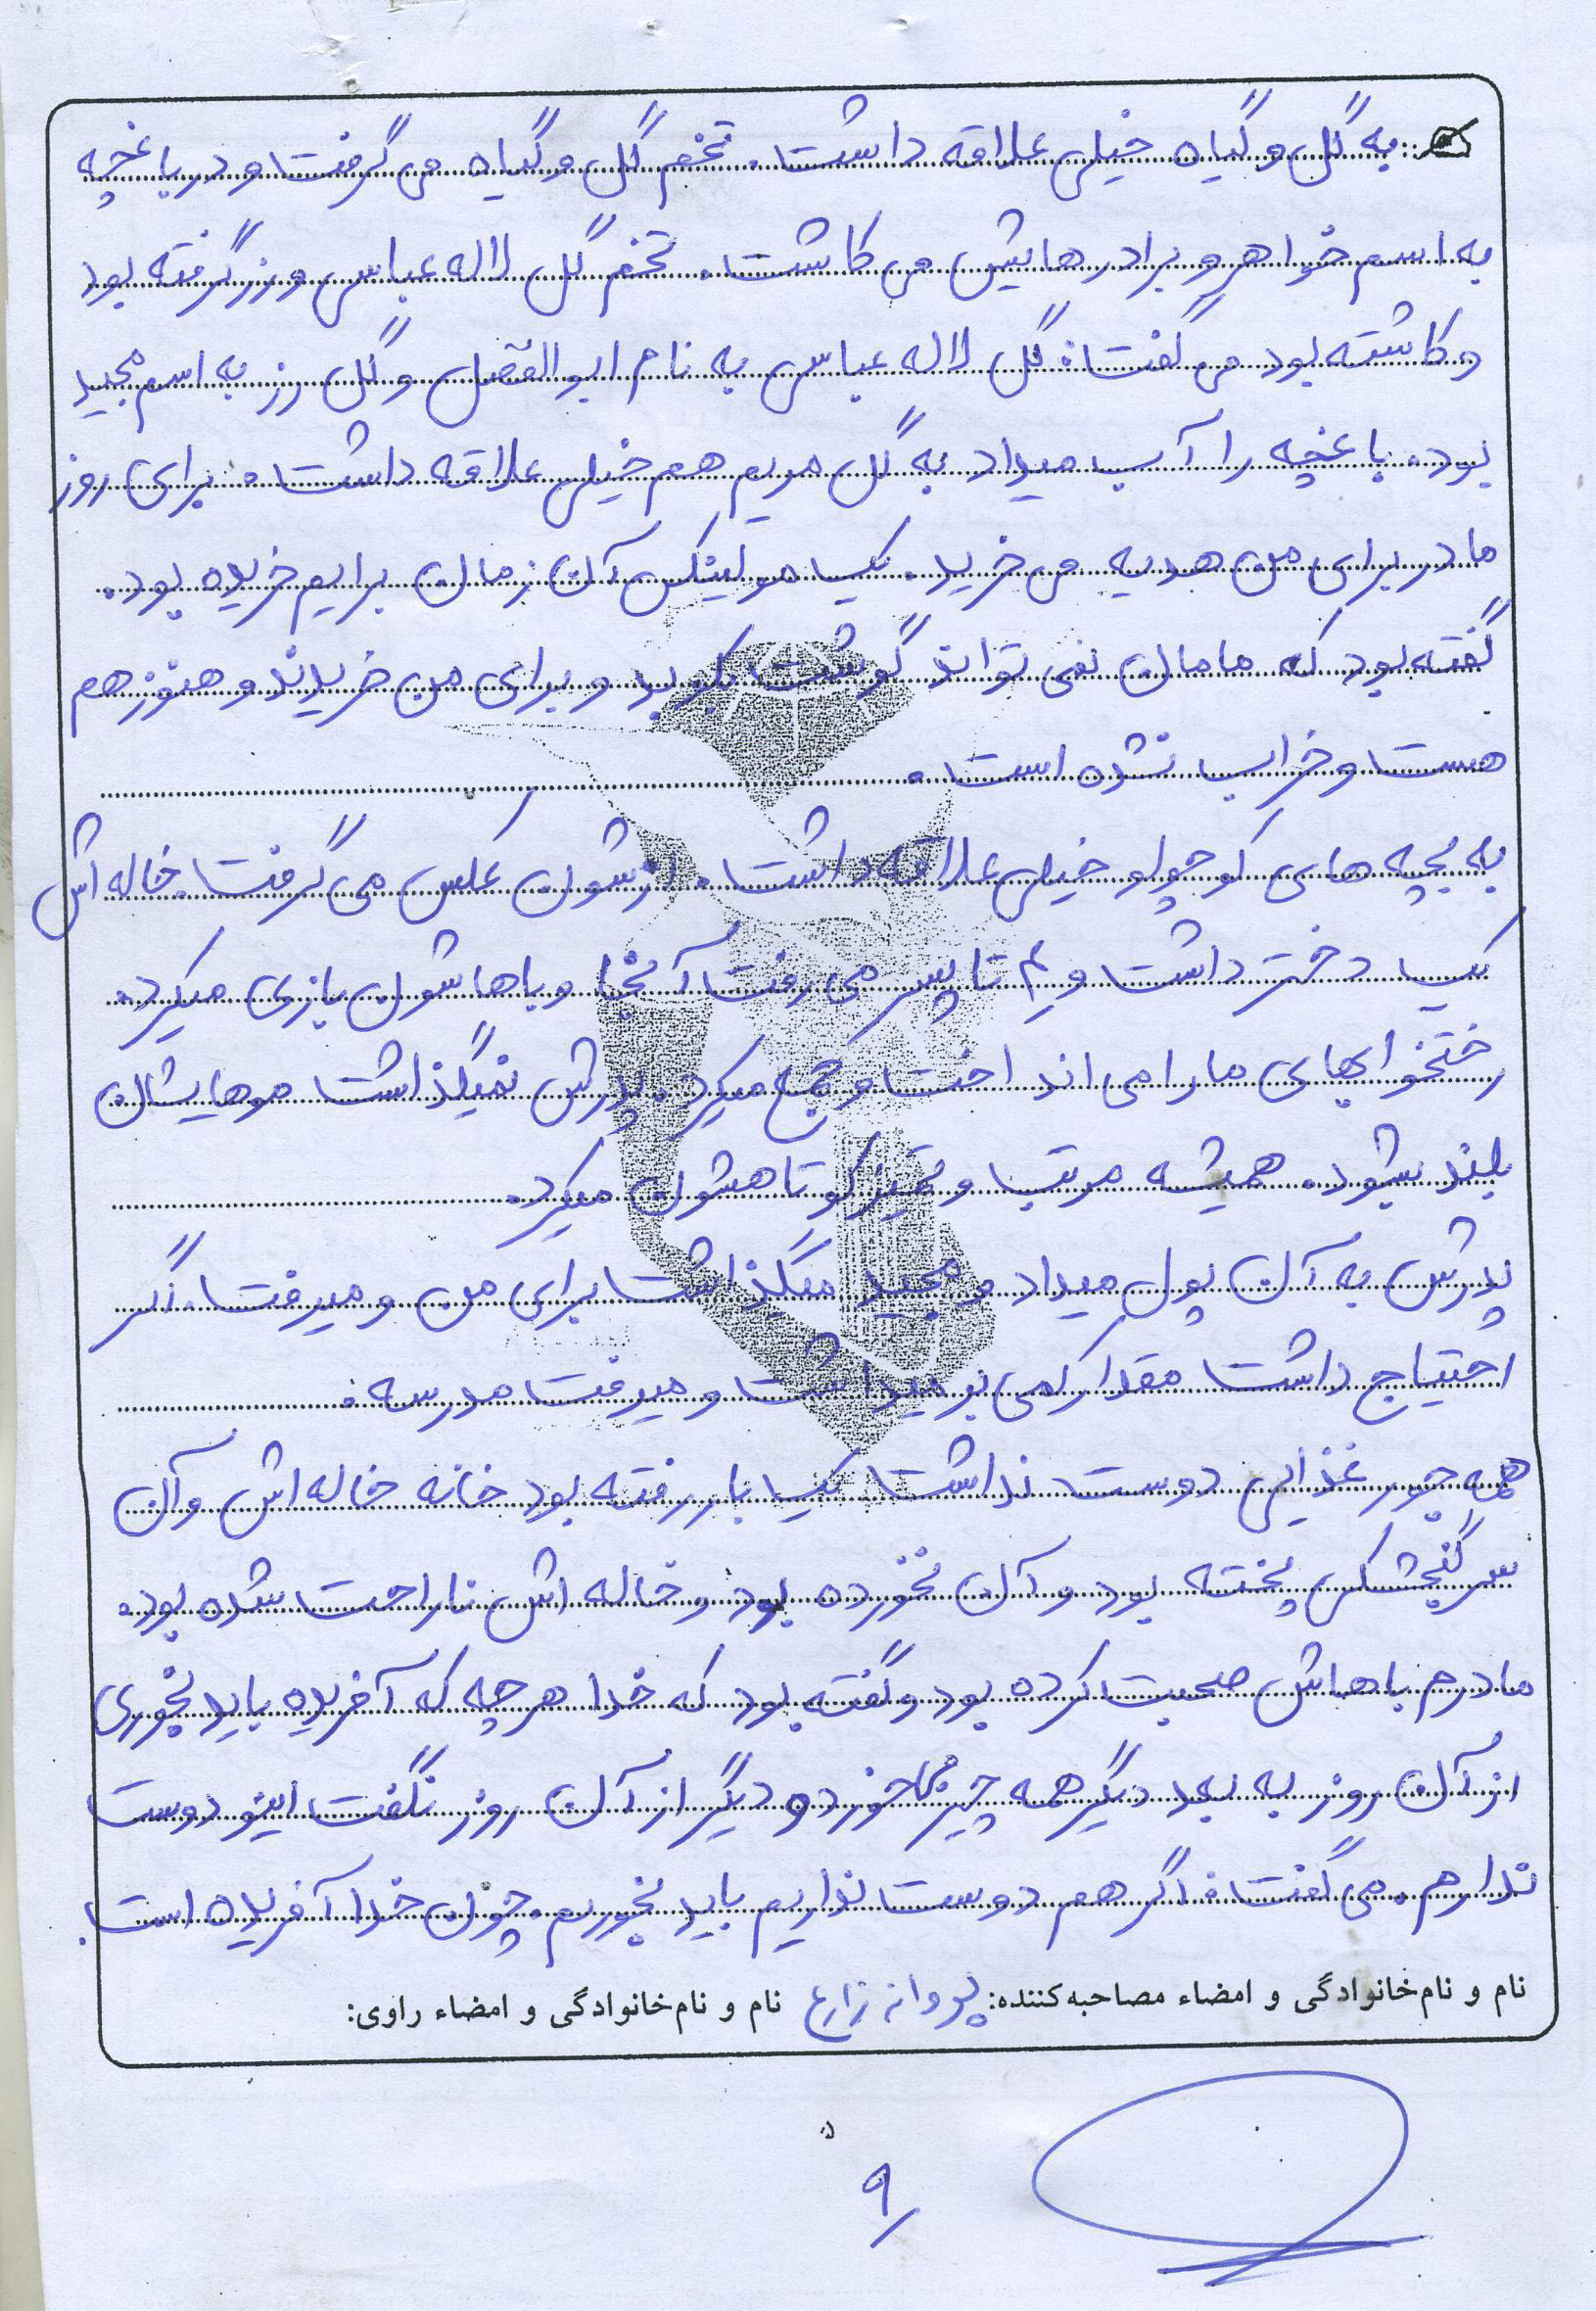 به گل و گیاه خیلی علاقه داشت. تخم گل و گیاه می گرفت و در باغچه
به اسم خواهر و برادرهایش می کاشت. تخم گل لاله عباسی و رز گرفته بود
و کاشته بود می گفت: گل لاله عباسی به نام ابوالفضل و گل رز به اسم مجید
بود. باغچه را آب میداد به گل مریم هم خیلی علاقه داشت. برای روز
مادر برای من هدیه می خرید. یک مولینکس آن زمان برایم خریده بود.
گفته بود که مامان نمی تواند گوشت بکوبد و برای من خریدند و هنوز هم
هست و خراب نشده است.
به بچه های کوچولو خیلی علاقه داشت. ازشون عکس می گرفت. خاله اش
یک دختر داشت و ۴ تا پسر می رفت آنجا و باهاشون بازی میکرد.
رختخوابهای ما را می انداخت و جمع میکرد. پدرش نمیگذاشت موهایشان
بلند بشود. همیشه مرتب و تمیز کوتاهشون میکرد.
پدرش به آن پول میداد و مجید میگذاشت برای من و میرفت. اگر
احتیاج داشت مقدار کمی بر میداشت و میرفت مدرسه.
همه جور غذایی دوست نداشت یک بار رفته بود خانه خاله اش و آن
سر گنجشکی پخته بود و آن نخورده بود و خاله اش ناراحت شده بود.
مادرم باهاش صحبت کرده بود و گفته بود که خدا هر چه که آفریده باید بخوری
از آن روز به بعد دیگر همه چیز میخورد و دیگر از آن روز نگفت اینو دوست
ندارم. می گفت: اگر هم دوست نداریم باید بخوریم. چون خدا آفریده است.
نام و نام‌خانوادگی و امضاء مصاحبه‌کننده: پروانه زارع نام و نام‌خانوادگی و امضاء راوی:
۹